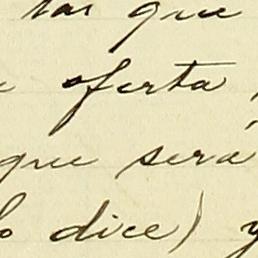 las que
oferta,
que será
lo dice) y